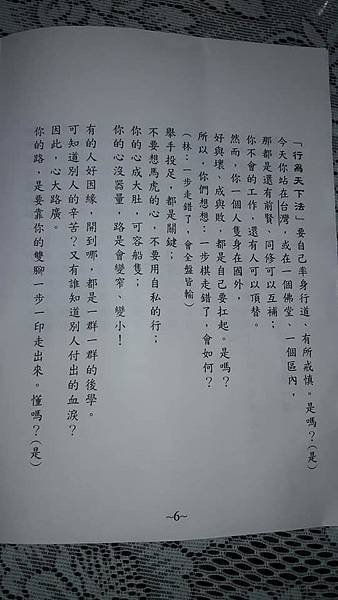 「行為天下法」要自己率身行道、有所戒慎。是嗎？(是)
今天你站在台灣，或在一個佛堂、一個區內，
那都是還有前賢、同修可以互補；
你不會的工作，還有人可以頂替。
然而，你一個人隻身在國外，
好與壞、成與敗，都是自己要扛起。是嗎？
所以，你們想想：一步棋走錯了，會如何？
(林：一步走錯了，會全盤皆輸)
舉手投足，都是關鍵；
不要想馬虎的心，不要用自私的行；
你的心成大肚，可容船隻；
你的心沒器量，路是會變窄、變小！
有的人好因緣，開到哪，都是一群一群的後學。
可知道別人的辛苦？又有誰知道別人付出的血淚？
因此，心大路廣。
你的路，是要靠你的雙腳一步一印走出來。懂嗎？(是)
~6~